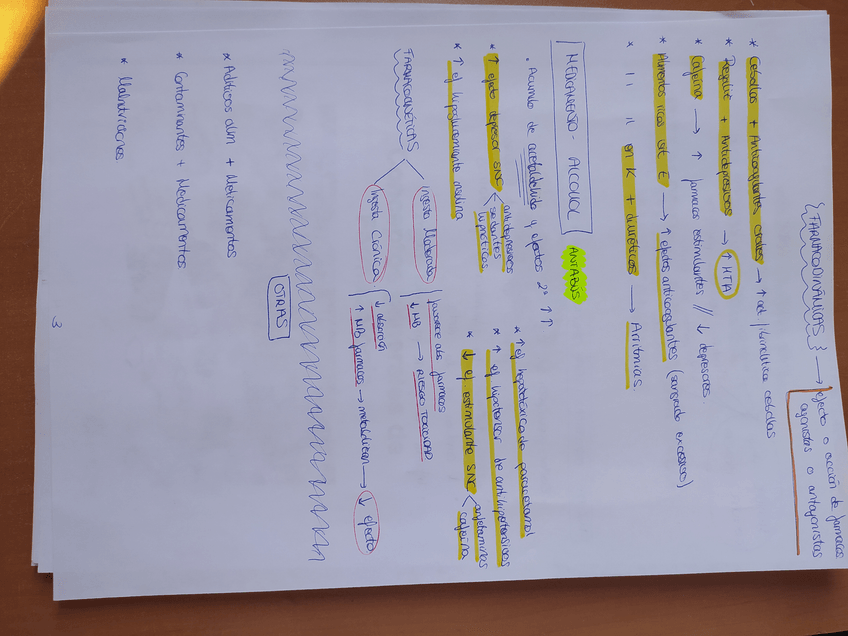 {FARMACODINÁMICAS} → efecto o acción de fármacos
agonistas o antagonistas
* Cebollas + Anticoagulantes orales → ↑ act. fibrinolítica cebollas
* Regaliz + Antidepresivos → ↑ HTA
* Cafeína → ↑ fármacos estimulantes // ↓ depresores.
* Alimentos ricos vit E → ↑ efectos anticoagulantes (sangrado excesivo)
* 11 11 en K + diuréticos → Arritmias.
MEDICAMENTO - ALCOHOL ANTABÚS
• Acumulo de acetaldehído y efectos 2º ↑↑
* ↑ efecto depresor SNC < antidepresivos
sedantes
hipnóticos
* ↑ ef hipoglucemiante insulina
* ↑ ef hepatotóxico de paracetamol
* ↑ ef hipotensor de antihipertensivos
* ↓ ef estimulante SNC < anfetaminas
cafeína
FARMACOCINÉTICAS
Ingesta Moderada
favorece abs fármacos
↓ MB → RIESGO TOXICIDAD
Ingesta Crónica
↓ absorción
↑ MB fármacos → metabolizan → ↓ efecto
OTRAS
* Aditivos alim + Medicamentos
* Contaminantes + Medicamentos
* Malnutriciones
3